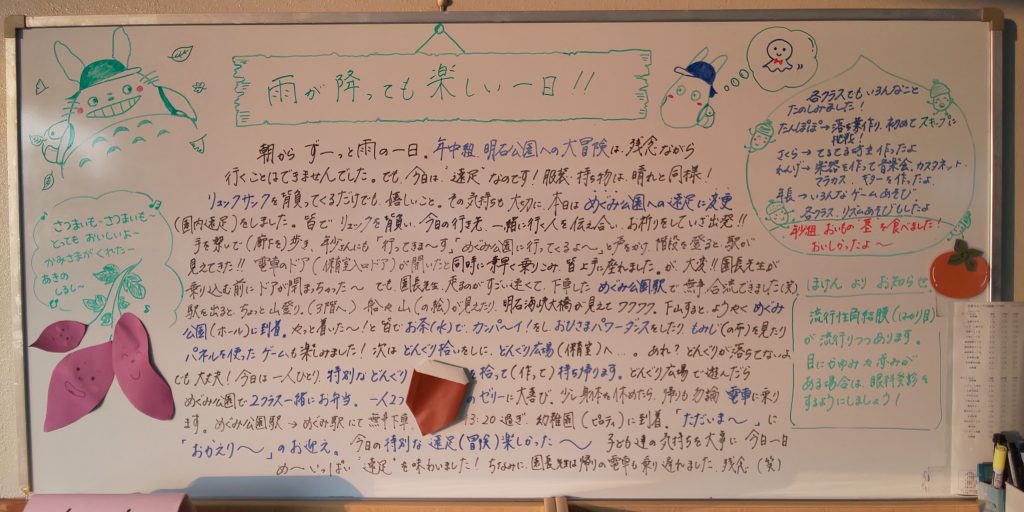 雨が降っても楽しい一日!!
朝から ずーっと雨の一日。年中組 明石公園への大冒険は、残念ながら
行くことはできませんでした。でも、今日は、"遠足"なのです!服装・持ち物は、晴れと同様!
リュックサックを背負ってくるだけでも、嬉しいこと。その気持ちも大切に、本日は めぐみ公園への遠足に変更
(園内遠足)をしました。皆で リュックを背負い、今日の行き先、一緒に行く人を伝え合い、お祈りをしていざ出発!!
手を繋いで(廊下を)歩き、年少さんにも"行ってきま〜す。""めぐみ公園に行ってくるよ〜"と声をかけ、階段を登ると、駅が
見えてきた!!電車のドア(保育室入口ドア)が開いたと同時に素早く乗りこみ、皆上手に座れました。が、大変!!園長先生が
乗り込む前にドアが閉まっちゃった〜 でも、園長先生、走るのがすごい速くて、下車した めぐみ公園駅で無事合流できました(笑)
駅を出ると、ちょっと山登り。(3階へ) 船や山(の絵)が見えたり、明石海峡大橋が見えて ワクワク。下山すると、ようやく めぐみ
公園(ホール)に到着。やっと着いた〜!と皆でお茶(水)で、カンパーイ!をし おひさまパワーダンスをしたり、もみじ(の手)を見たり
パネルを使った ゲームも楽しみました!次は どんぐり拾いをしに、どんぐり広場(保育室)へ…。あれ?どんぐりが落ちてないよ
でも大丈夫!今日は一人ひとり、特別などんぐり を拾って(作って)持ち帰ります。どんぐり広場で遊んだら
めぐみ公園で2クラス一緒にお弁当。一人2つ のゼリーに大喜び、少し身体を休めたら、帰りも勿論 電車に乗り
ます。めぐみ公園駅→めぐみ駅にて無事下車。 13:20過ぎ、幼稚園( )に到着。「ただいま〜」に
「おかえり〜」のお迎え。今日の特別な 遠足(冒険)楽しかった〜 子ども達の気持ちを大事に 今日一日
め〜いっぱい"遠足"を味わいました!ちなみに、園長先生は帰りの電車も乗り遅れました、残念(笑)
さつまいも〜さつまいも〜
とっても おいしいよ〜
かみさまがくれた〜
あきの
しるし〜
各クラスでも いろんなこと
たのしみました!
たんぽぽ→落ち葉作り、初めて スキップに
挑戦!
さくら→てるてる坊主作ったよ
れんげ→楽器を作って音楽会、カスタネット、
マラカス、ギターを作ったよ
年長→いろんなゲームあそび
各クラス、リズムあそびもしたよ
年少組 おいもの"茎"を食べました!
おいしかったよ〜
ほけん より お知らせ
流行性角結膜(はやり目)
が流行りつつあります。
目にかゆみや赤みが
ある場合は、眼科受診を
するようにしましょう!